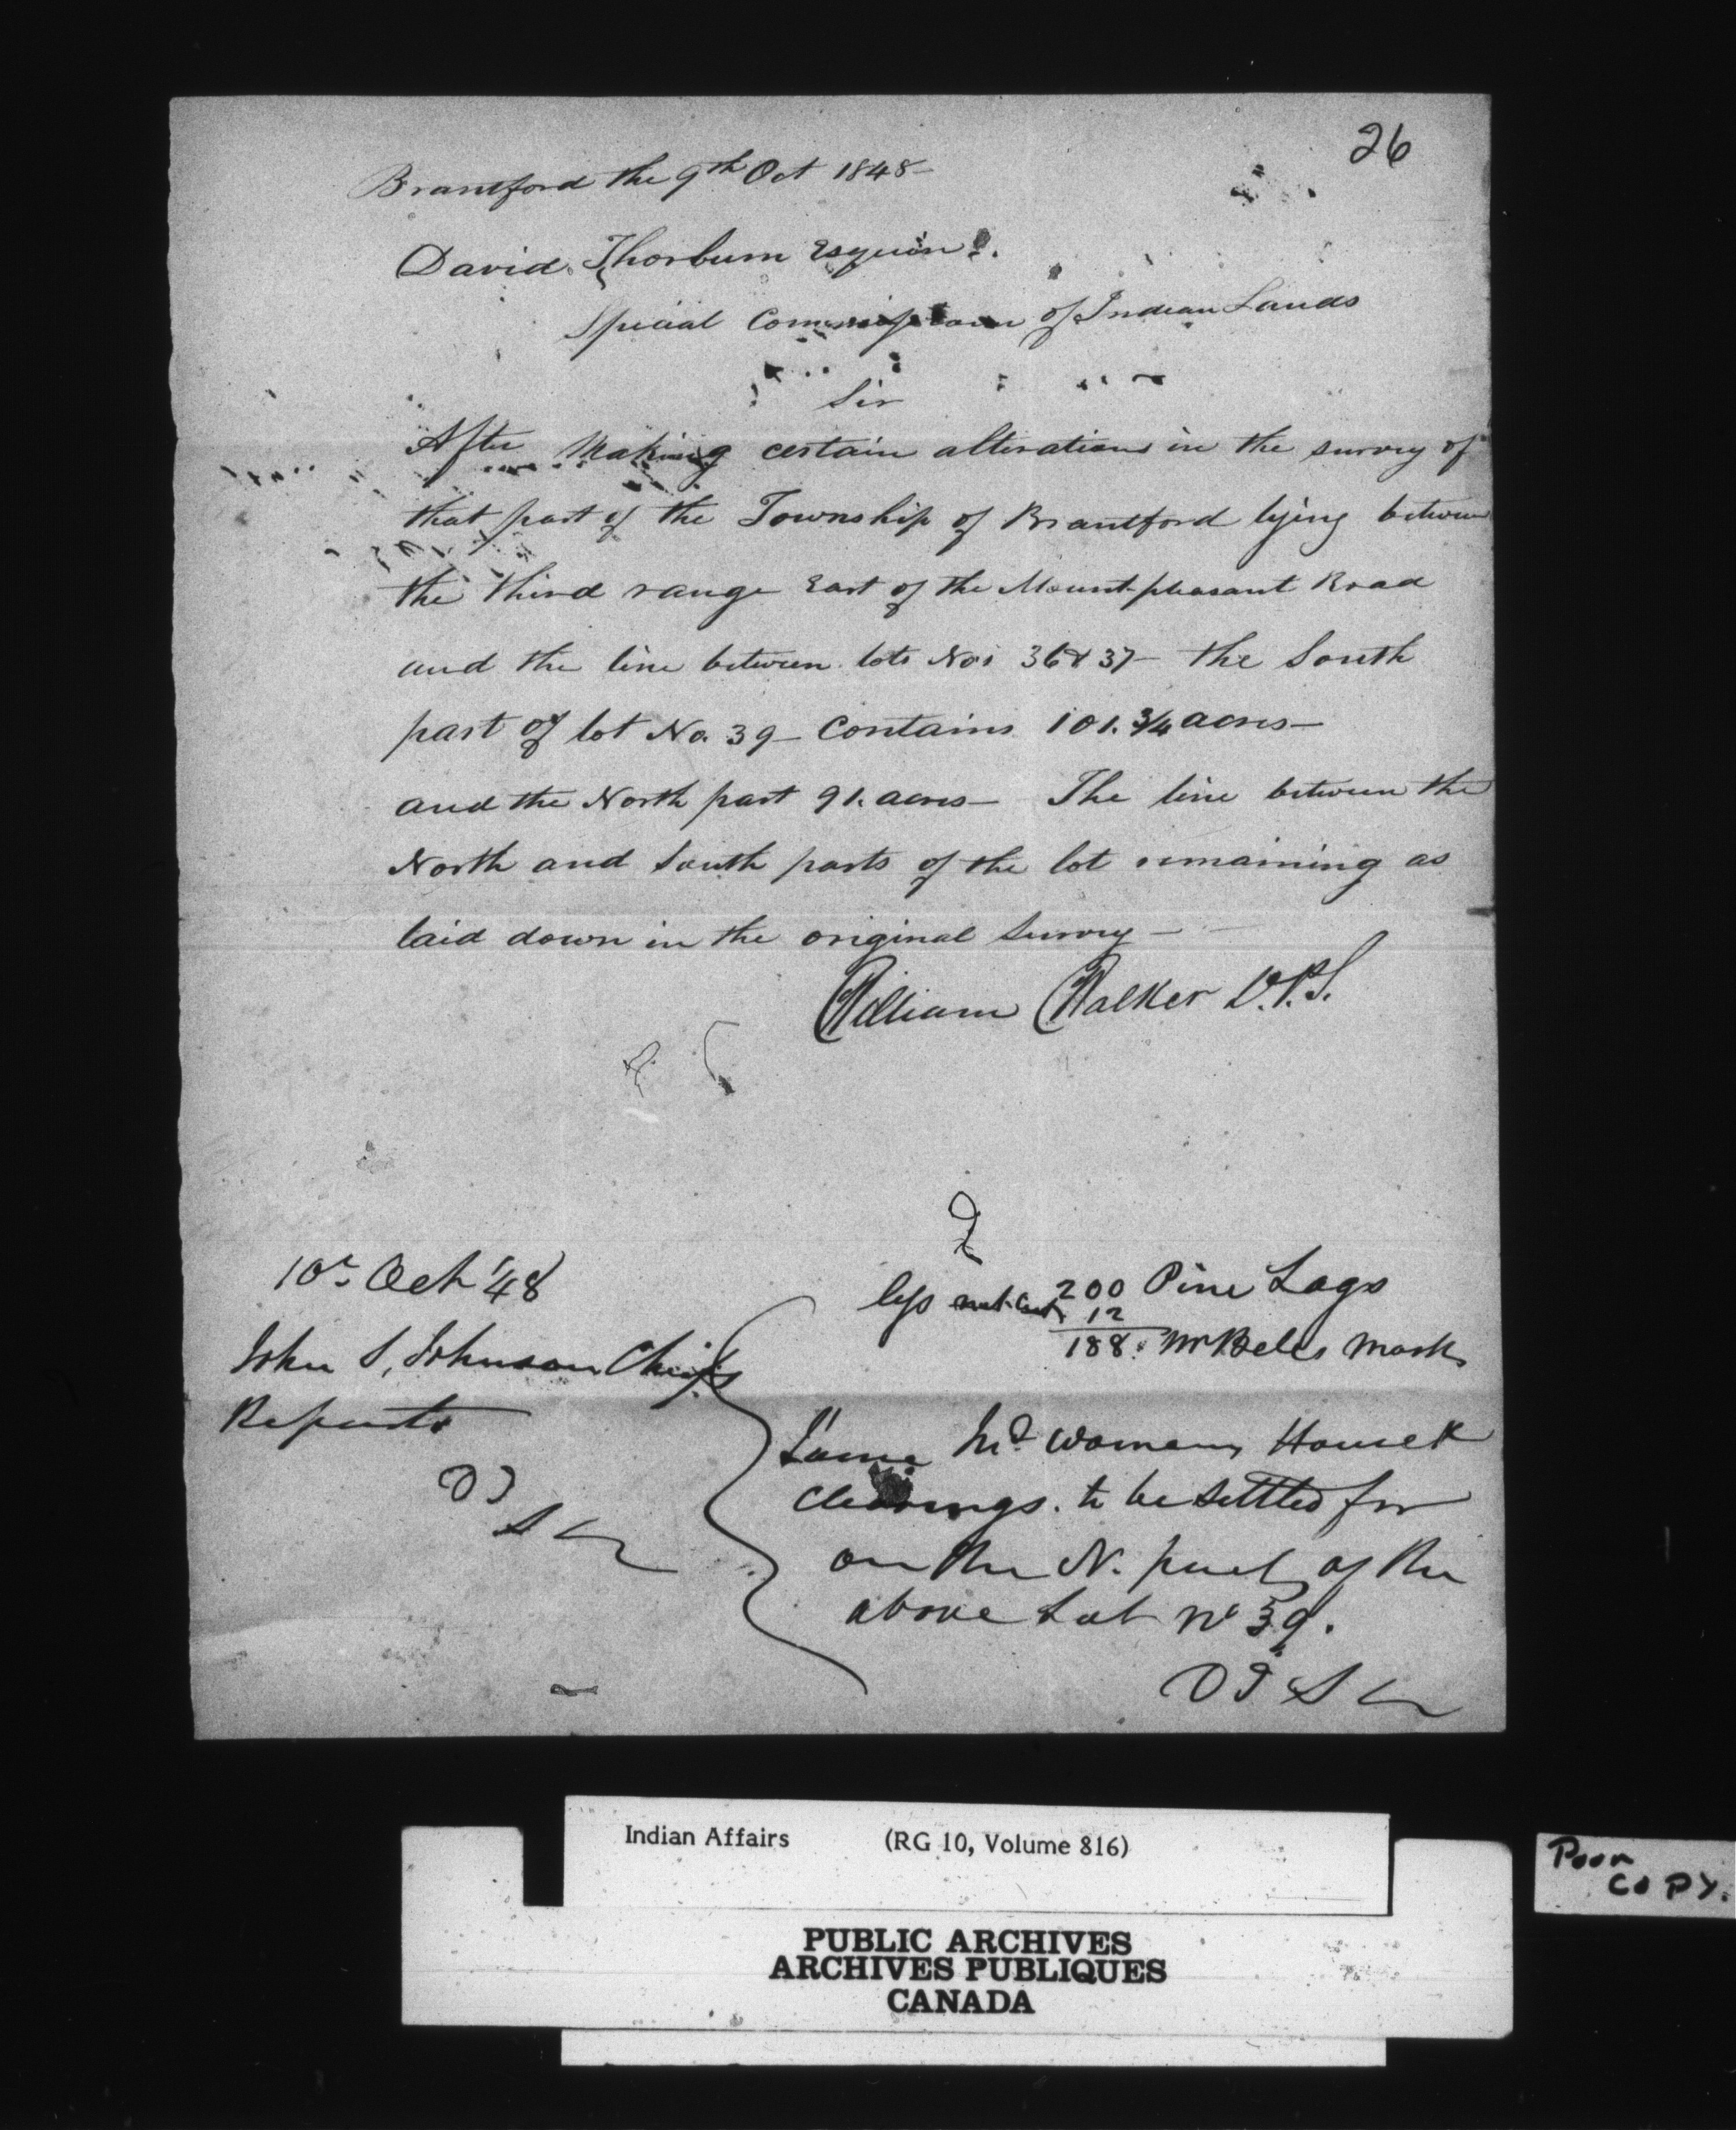 26
Brantford the 9th Oct 1848-
David Thorburn Esquire.
Special Commissioner of Indian Lands
Sir
After Making certain alterations in the survey of
that part of the Township of Brantford lying between
the third range East of the Mount-pleasant Road
and the line between lots Nos 36 & 37- the South
part of lot No. 39- Contains 101.3/4 acres-
and the North part 91. acres- The line between the
North and South parts of the lot remaining as
laid down in the original Survey-
William Walker D.P.S.
10th Oct '48
John S, Johnson Chief
Reports
DT
S C
200 Pine Logs
less not cut 12
188. Mr Beles Mark
Some Indn womans House &
clearings. to be settled for
on the N. part of the
above Lot No 39.
DT S C
Indian Affairs (RG 10, Volume 816)
PUBLIC ARCHIVES
ARCHIVES PUBLIQUES
CANADA
Poor
COPY.